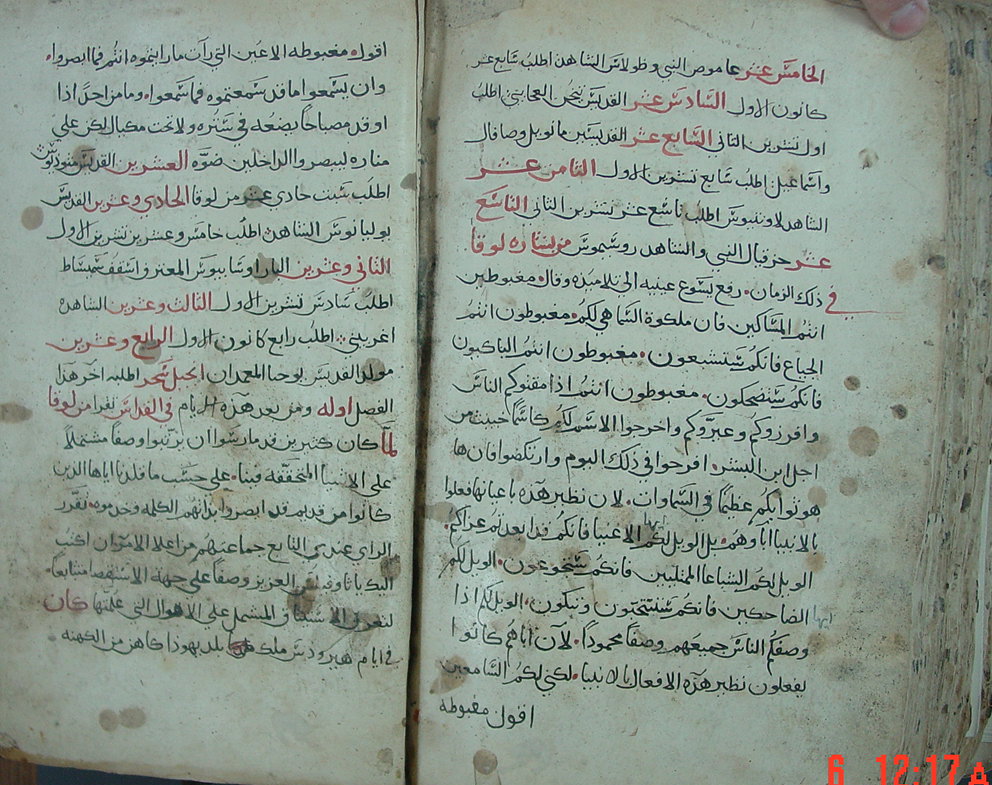 الخامس عشر عاموص النبي وطولاس الشاهد اطلب سابع عشر
كانون الاول السادس عشر القديس يحن العجايبي اطلب
اول تشرين الثاني السابع عشر القديسين مانويل وصافال
واسماعيل اطلب سابع تشرين الاول الثامن عشر
الشاهد لاونتيوس اطلب تاسع عشر تشرين الثاني التاسع
عشر حزقيال النبي والشاهد روسيموس من بشاره لوقا
في ذلك الزمان رفع يسوع عينيه الى تلاميذه وقال مغبوطين
انتم المساكين فان ملكوة السما هي لكم مغبوطون انتم
الجياع فانكم ستشبعون مغبوطون انتم الباكيون
فانكم ستضحكون مغبوطون انتم اذا مقتوكم الناس
وافرزوكم وعيروكم واخرجوا الاسم لكم كاسما خبيث من
اجل ابن البشر افرحوا في ذلك اليوم وارتكضوا فان ها
هو ثوابكم عظيما في السماوات لان نظير هذه باعيانها فعلوا
بالانبيا اباوهم بل الويل لكم ايها الاغنيا فانكم قد ابعدتم عزاكم
الويل لكم الشباعا الممتليين فانكم ستجوعون الويل لكم
ايها الضاحكين فانكم ستنتحبون وتبكون الويل لكم اذا
وصفكم الناس جميعهم وصفا محمودا لان اباهم كانوا
يفعلون نظير هذه الافعال بالانبيا لكني لكم السامعين
اقول مغبوطه
اقول مغبوطه الاعين التي رات ما رايتموه انتم فما ابصروا
وان يسمعوا ما قد سمعتموه فما سمعوا وما من احد اذا
اوقد مصباحا يضعه في ستره ولا تحت مكيال لكن على
مناره ليبصروا الداخلين ضوه العشرين القديس
اطلب ست حادي عشر من لوقا الحادي وعشرين القديس
يوليانوس الشاهد اطلب خامس وعشرين تشرين الاول
الثاني وعشرين البار اوسابيوس المعترف اسقف شمساط
اطلب سادس تشرين الاول الثالث وعشرين الشاهده
اغربيني اطلب رابع كانون الاول الرابع وعشرين
مولد القديس يوحنا المعمدان انجيل سحر اطلبه اخر هذا
الفصل اوله ومن بعد هذه الايام في القداس يقرا من لوقا
لما كان كثيرين قد مارسوا ان يرتبوا وصفا مشتملا
على الاشيا المتحققه فينا على حسب ما قلدنا اياها الذين
كانوا من قديم قد ابصروا بذاتهم الكلمه وخدموه تقرر
الراي عندي التابع جماعتهم من اعلا الامر ان اكتب
اليك يا ثاوفيلس العزيز وصفا على جهة الاستقصا متتابعا
لتعرف الاشيا المشتمل على الاهوال التي علمتها كان
في ايام هيرودس ملك بلد يهوذا كاهن من الكهنه